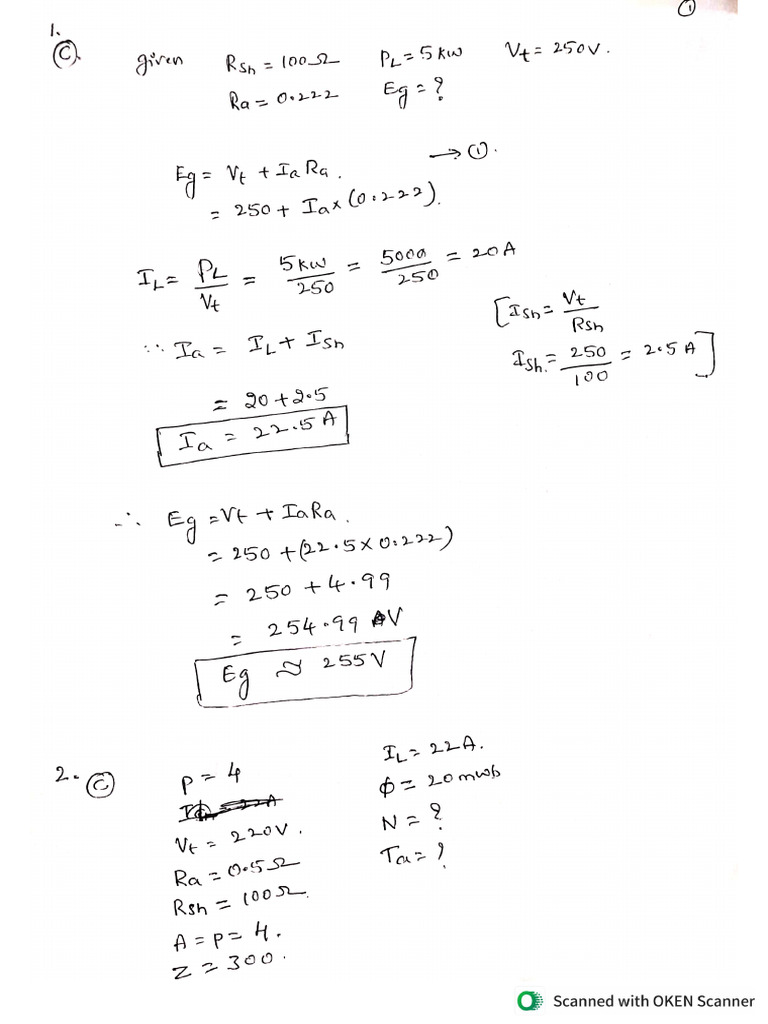 ①
1.
Ⓒ. given Rsh = 100Ω PL = 5kW Vt = 250V.
Ra = 0.222 Eg = ?
Eg = Vt + IaRa. → ①.
= 250 + Ia x (0.222).
IL = PL/Vt = 5kW/250 = 5000/250 = 20A
[Ish = Vt/Rsh
∵ Ia = IL + Ish
Ish. = 250/100 = 2.5A]
= 20 + 2.5
Ia = 22.5A
∴ Eg = Vt + IaRa.
= 250 + (22.5 x 0.222)
= 250 + 4.99
= 254.99 V
Eg ≈ 255V
2. Ⓒ P = 4 IL = 22A.
Φ = 20mwb
Vt = 220V. N = ?
Ra = 0.5Ω Ta = ?
Rsh = 100Ω.
A = P = 4.
Z = 300.
Scanned with OKEN Scanner